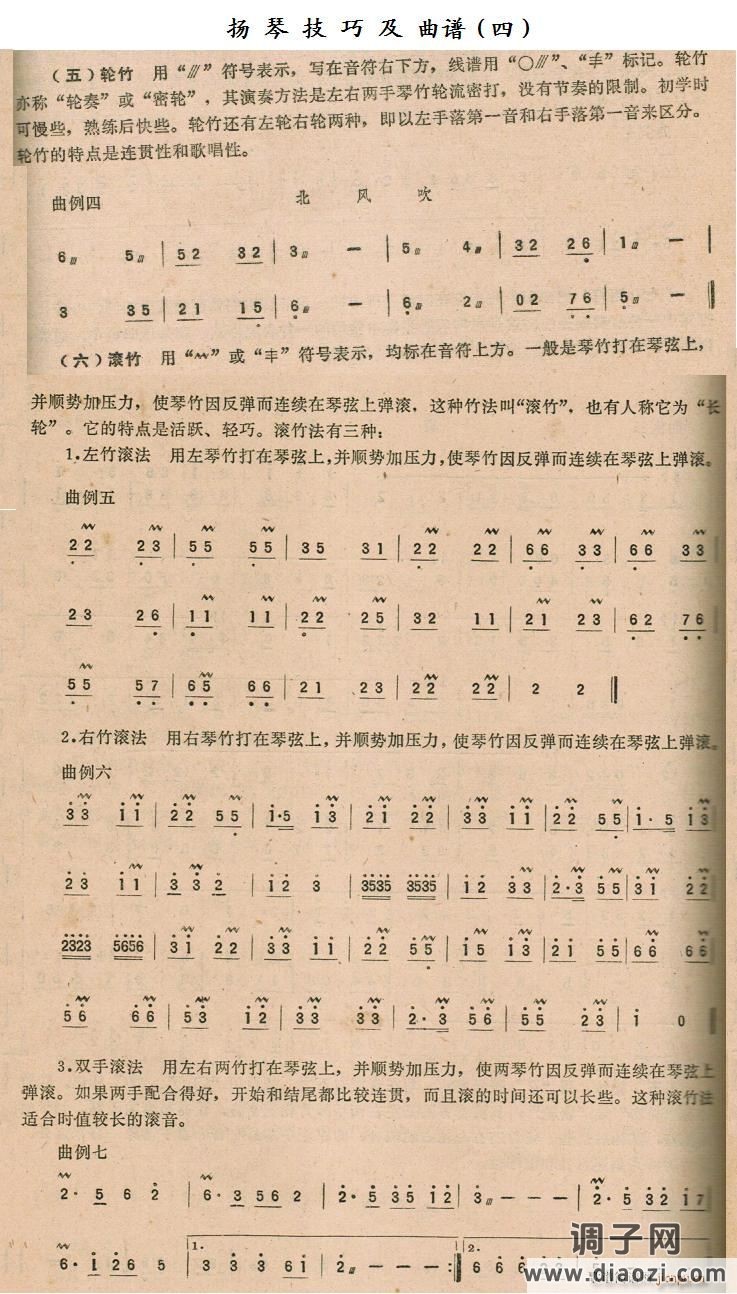 扬琴技巧及曲谱(四)
（五）轮竹 用“⫻”符号表示，写在音符右下方，线谱用“○⫻”、“丯”标记。轮竹
亦称“轮奏”或“密轮”，其演奏方法是左右两手琴竹轮流密打，没有节奏的限制。初学时
可慢些，熟练后快些。轮竹还有左轮右轮两种，即以左手落第一音和右手落第一音来区分。
轮竹的特点是连贯性和歌唱性。
曲例四 北风吹
6⫻ 5⫻ | 52 32 | 3⫻ — | 5⫻ 4⫻ | 32 26 | 1⫻ — |
3 35 | 21 15 | 6⫻ — | 6⫻ 2⫻ | 02 76 | 5⫻ — ‖
（六）滚竹 用“〰”或“丰”符号表示，均标在音符上方。一般是琴竹打在琴弦上，
并顺势加压力，使琴竹因反弹而连续在琴弦上弹滚，这种竹法叫“滚竹”，也有人称它为“长
轮”。它的特点是活跃、轻巧。滚竹法有三种：
1.左竹滚法 用左琴竹打在琴弦上，并顺势加压力，使琴竹因反弹而连续在琴弦上弹滚。
曲例五
22 23 | 55 55 | 35 31 | 22 22 | 66 33 | 66 33 |
23 26 | 11 11 | 22 25 | 32 11 | 21 23 | 62 76 |
55 57 | 65 66 | 21 23 | 22 22 | 2 2 ‖
2.右竹滚法 用右琴竹打在琴弦上，并顺势加压力，使琴竹因反弹而连续在琴弦上弹滚。
曲例六
33 11 | 22 55 | 1·5 13 | 21 22 | 33 11 | 22 55 | 1·5 13 |
23 11 | 33 2 | 12 3 | 3535 3535 | 12 33 | 2·3 55 | 31 22 |
2323 5656 | 31 22 | 33 11 | 22 55 | 15 13 | 21 55 | 66 66 |
56 66 | 53 12 | 33 33 | 2·3 56 | 55 23 | 1 0 ‖
3.双手滚法 用左右两竹打在琴弦上，并顺势加压力，使两琴竹因反弹而连续在琴弦上
弹滚。如果两手配合得好，开始和结尾都比较连贯，而且滚的时间还可以长些。这种滚竹法
适合时值较长的滚音。
曲例七
2· 5 6 2 | 6· 3 56 2 | 2· 5 35 12 | 3⫻ — — — | 2·5 35 12 17 |
6· 1 26 5 | 1. 3 3 3 61 | 2⫻ — — :‖ 2. 6 6 6
调子网
www.diaozi.com